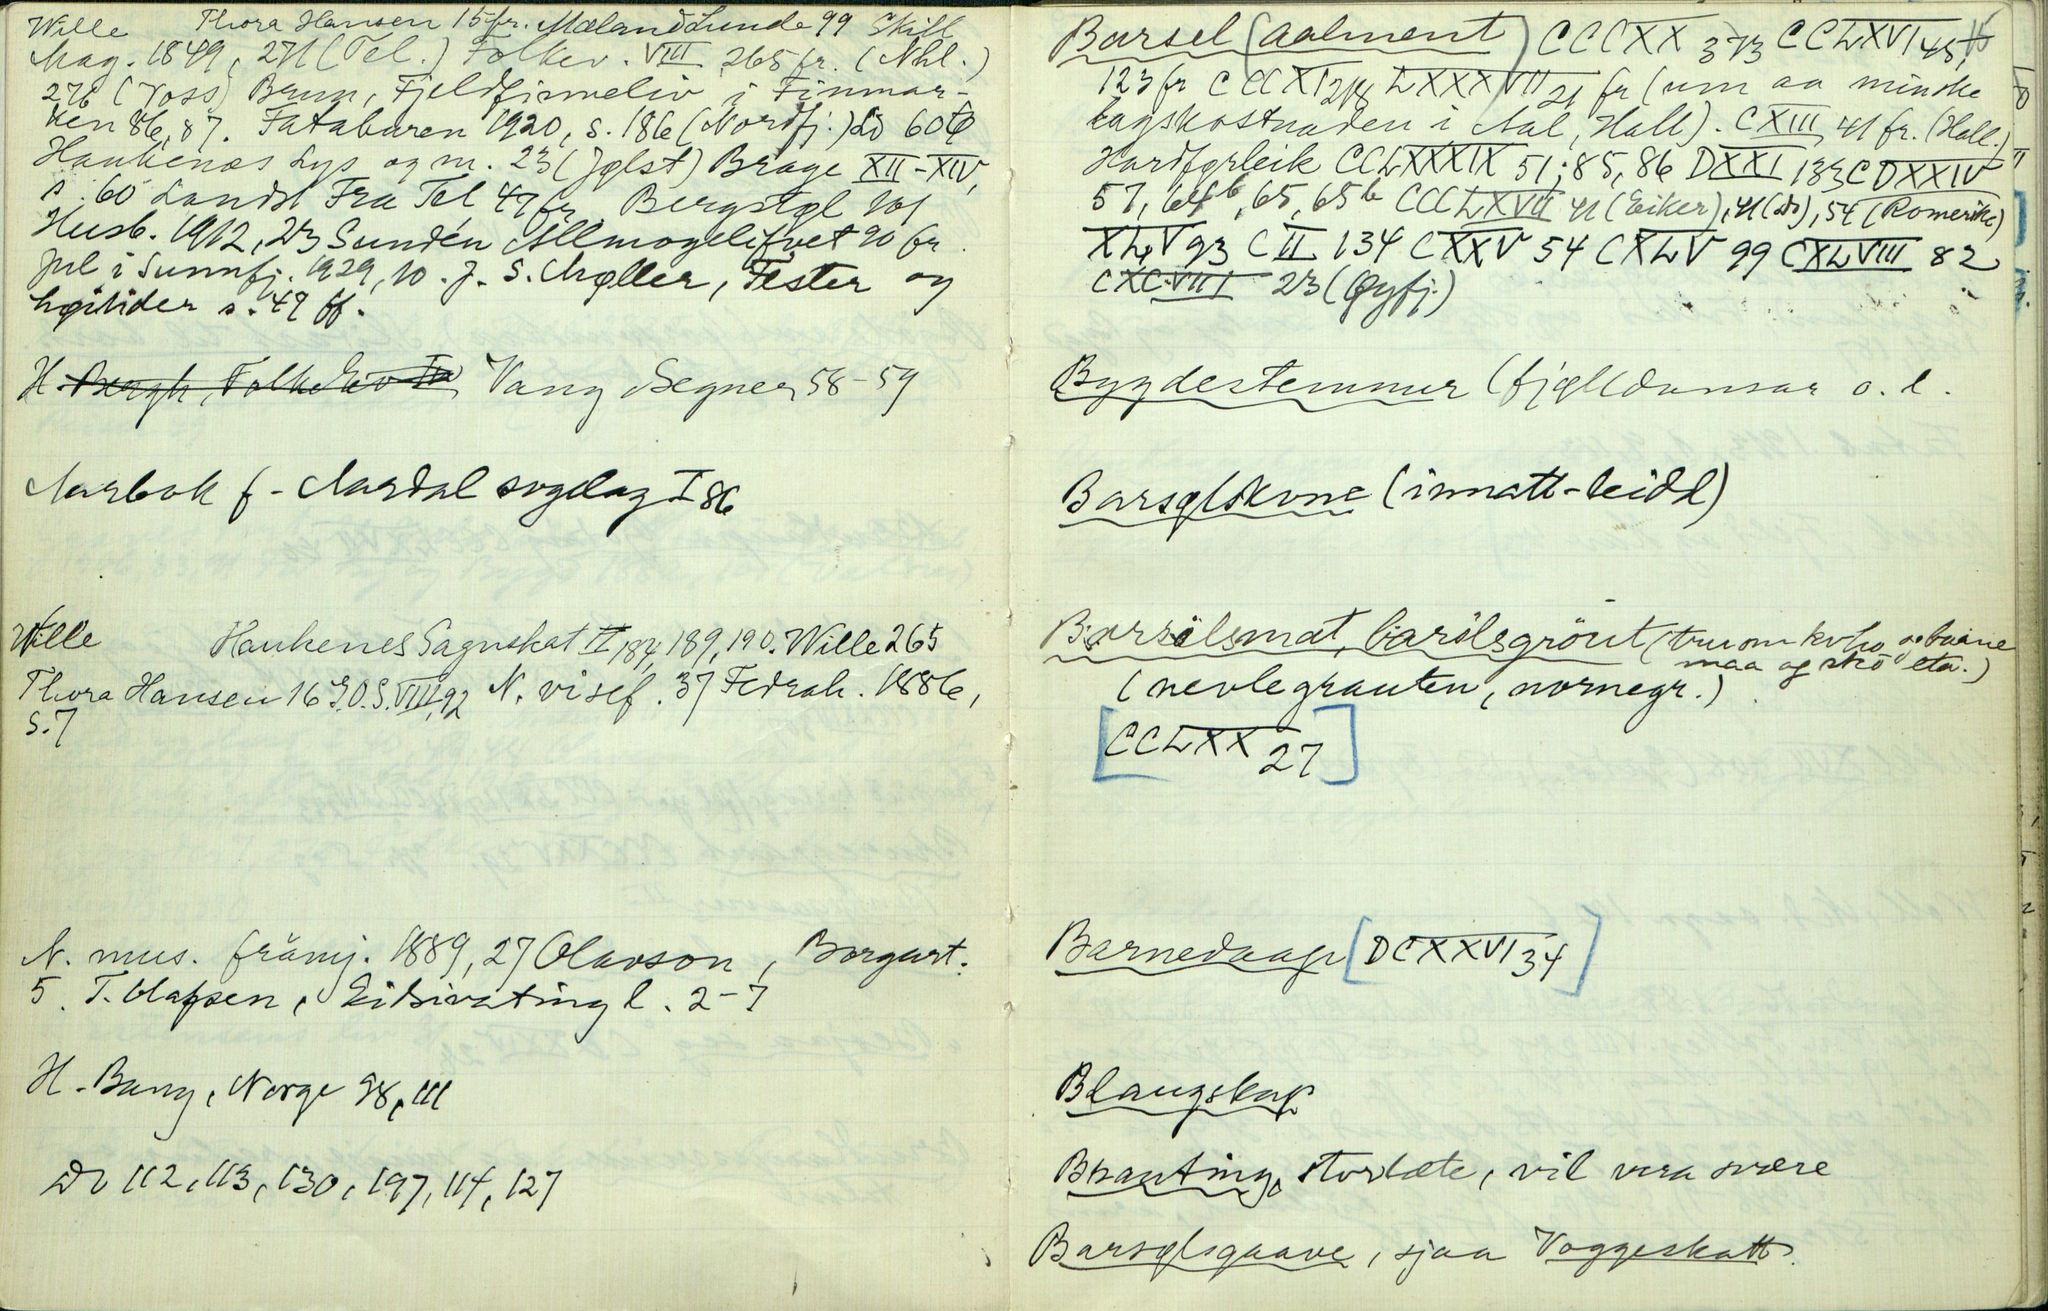 Wille Thora Hansen 15 fr. Mæland Lunde 99 Skill
Mag. 1849, 271 (Tel.) Folkev. VIII 265 fr. (Nhl.)
276 (Voss) Brun, Fjeldfinneliv i Finmar-
ken 86, 87. Fataburen 1920, s. 186 (Nordfj.) Do 60
Haukenæs Lys og m. 23 (Jølst) Brage XII-XIV,
s. 60 Landst Fra Tel 47 fr. Bergstøl 101
Husb. 1912, 273 Sundén Allmogelifvet 90 fr.
Jul i Sunnfj. 1929, 10. J. S. Møller, Fester og
höitider s. 49 ff.
H. Bergh, Folke Ev IV Vang Segner 58-59
Aarbok f. Aardal sogelag I 86
Wille Haukenes Sagnskat II 184, 189, 190. Wille 265
Thora Hansen 16 G.O.S. VIII, 92 N. visef. 37 Fedrah. 1886,
s. 7
N. mus. främj. 1889, 27 Olavson, Borgart.
5. T. Olafsen, Eidsivating l. 2-7
H. Bang, Norge 98, 111
Do 112, 113, 130, 197, 114, 127
Barsel (aalment) CCCXX 373 CCLXVI 45,
123 fr CCCXI 218 LXXXVII 21 fr (um aa minske
lagskostnaden i Aal, Hall). CXIII 41 fr. (Hall.)
Hardførleik CCLXXXIX 51; 85, 86 DXXI 183 CDXXIV
57, 64b, 65, 65b CCCLXVII 41 (Eiker), 41 (do), 54 (Romerike)
XLV 93 CII 134 CXXV 54 CXLV 99 CXLVIII 82
CXCVIII 23 (Øyfj.)
Bygdestemnur (fjølldansar o. l.
Barsølskone (innatt-leidd)
Barsilsmat, barsilsgröut (tru om kvho og baane
maa og sko eta.)
(nevlegrauten, nornegr.)
[CCLXX 27]
Barnedaape [DCXXVI 34]
Blaugskap
Brauting, storlæte, vil vera svære
Barsølsgaave, sjaa Voggeskatt.